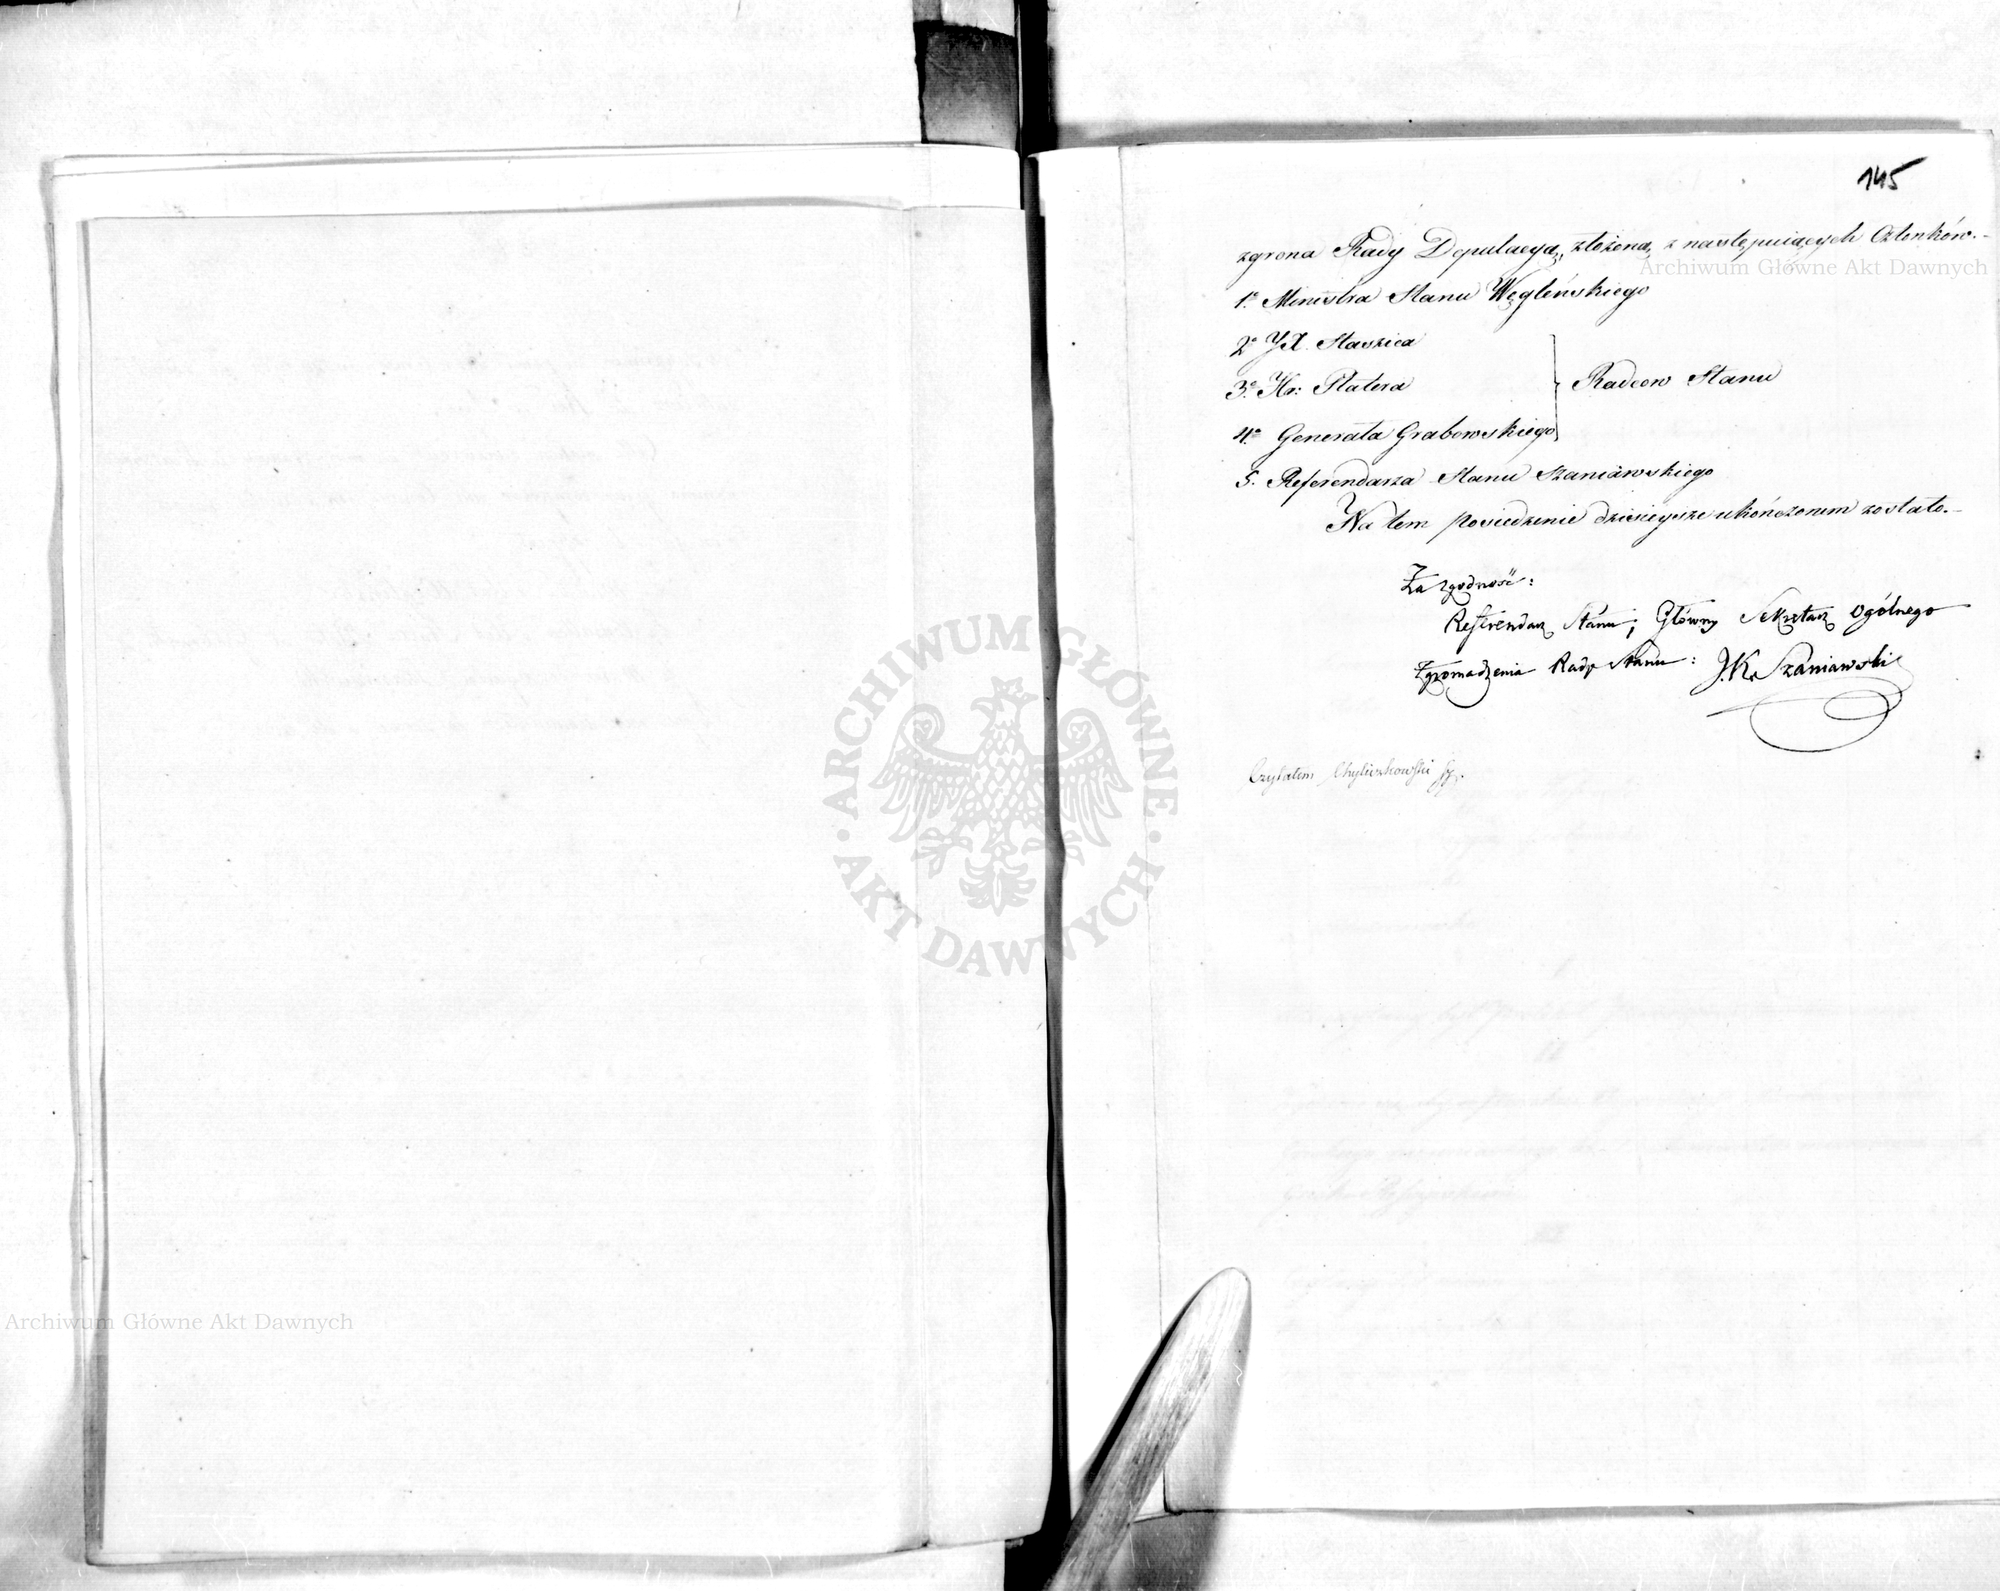 145
zgrona Rady Deputacyą, złożoną z następuiących Członków.–
1º Ministra Stanu Węgleńskiego
2º JX. Staszica
3º Hr: Platera
Radcow Stanu
4º Generała Grabowskiego
5. Referendarza Stanu Szaniawskiego
Na tem posiedzenie dzisieysze ukończonem zostało.–
Za zgodność:
Referendarz Stanu, Główny Sekretarz Ogólnego
Zgromadzenia Rady Stanu: J.K. Szaniawski
Czytałem Chyliczkowski
Archiwum Główne Akt Dawnych
ARCHIWUM GŁÓWNE AKT DAWNYCH
Archiwum Główne Akt Dawnych